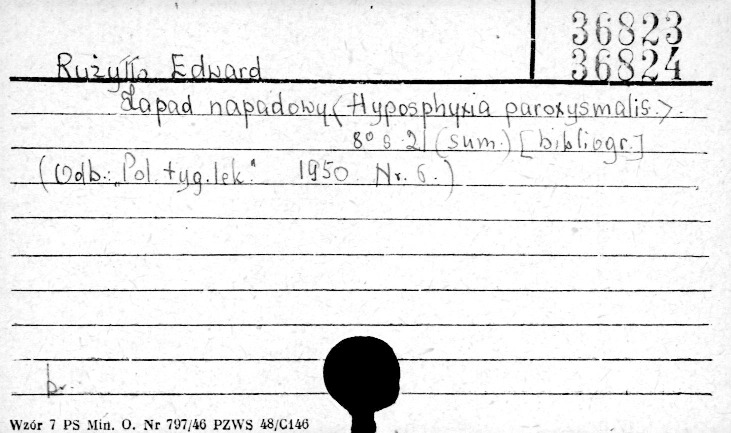 36823
36824
Rużyłło Edward
Zapad napadowy (Hyposphyxia paroxysmalis.).
8° s. 2 (sum.) [bibliogr.]
(Odb.: „Pol. tyg. lek." 1950 Nr. 6.)
br.
Wzór 7 PS Min. O. Nr 797/46 PZWS 48/C146